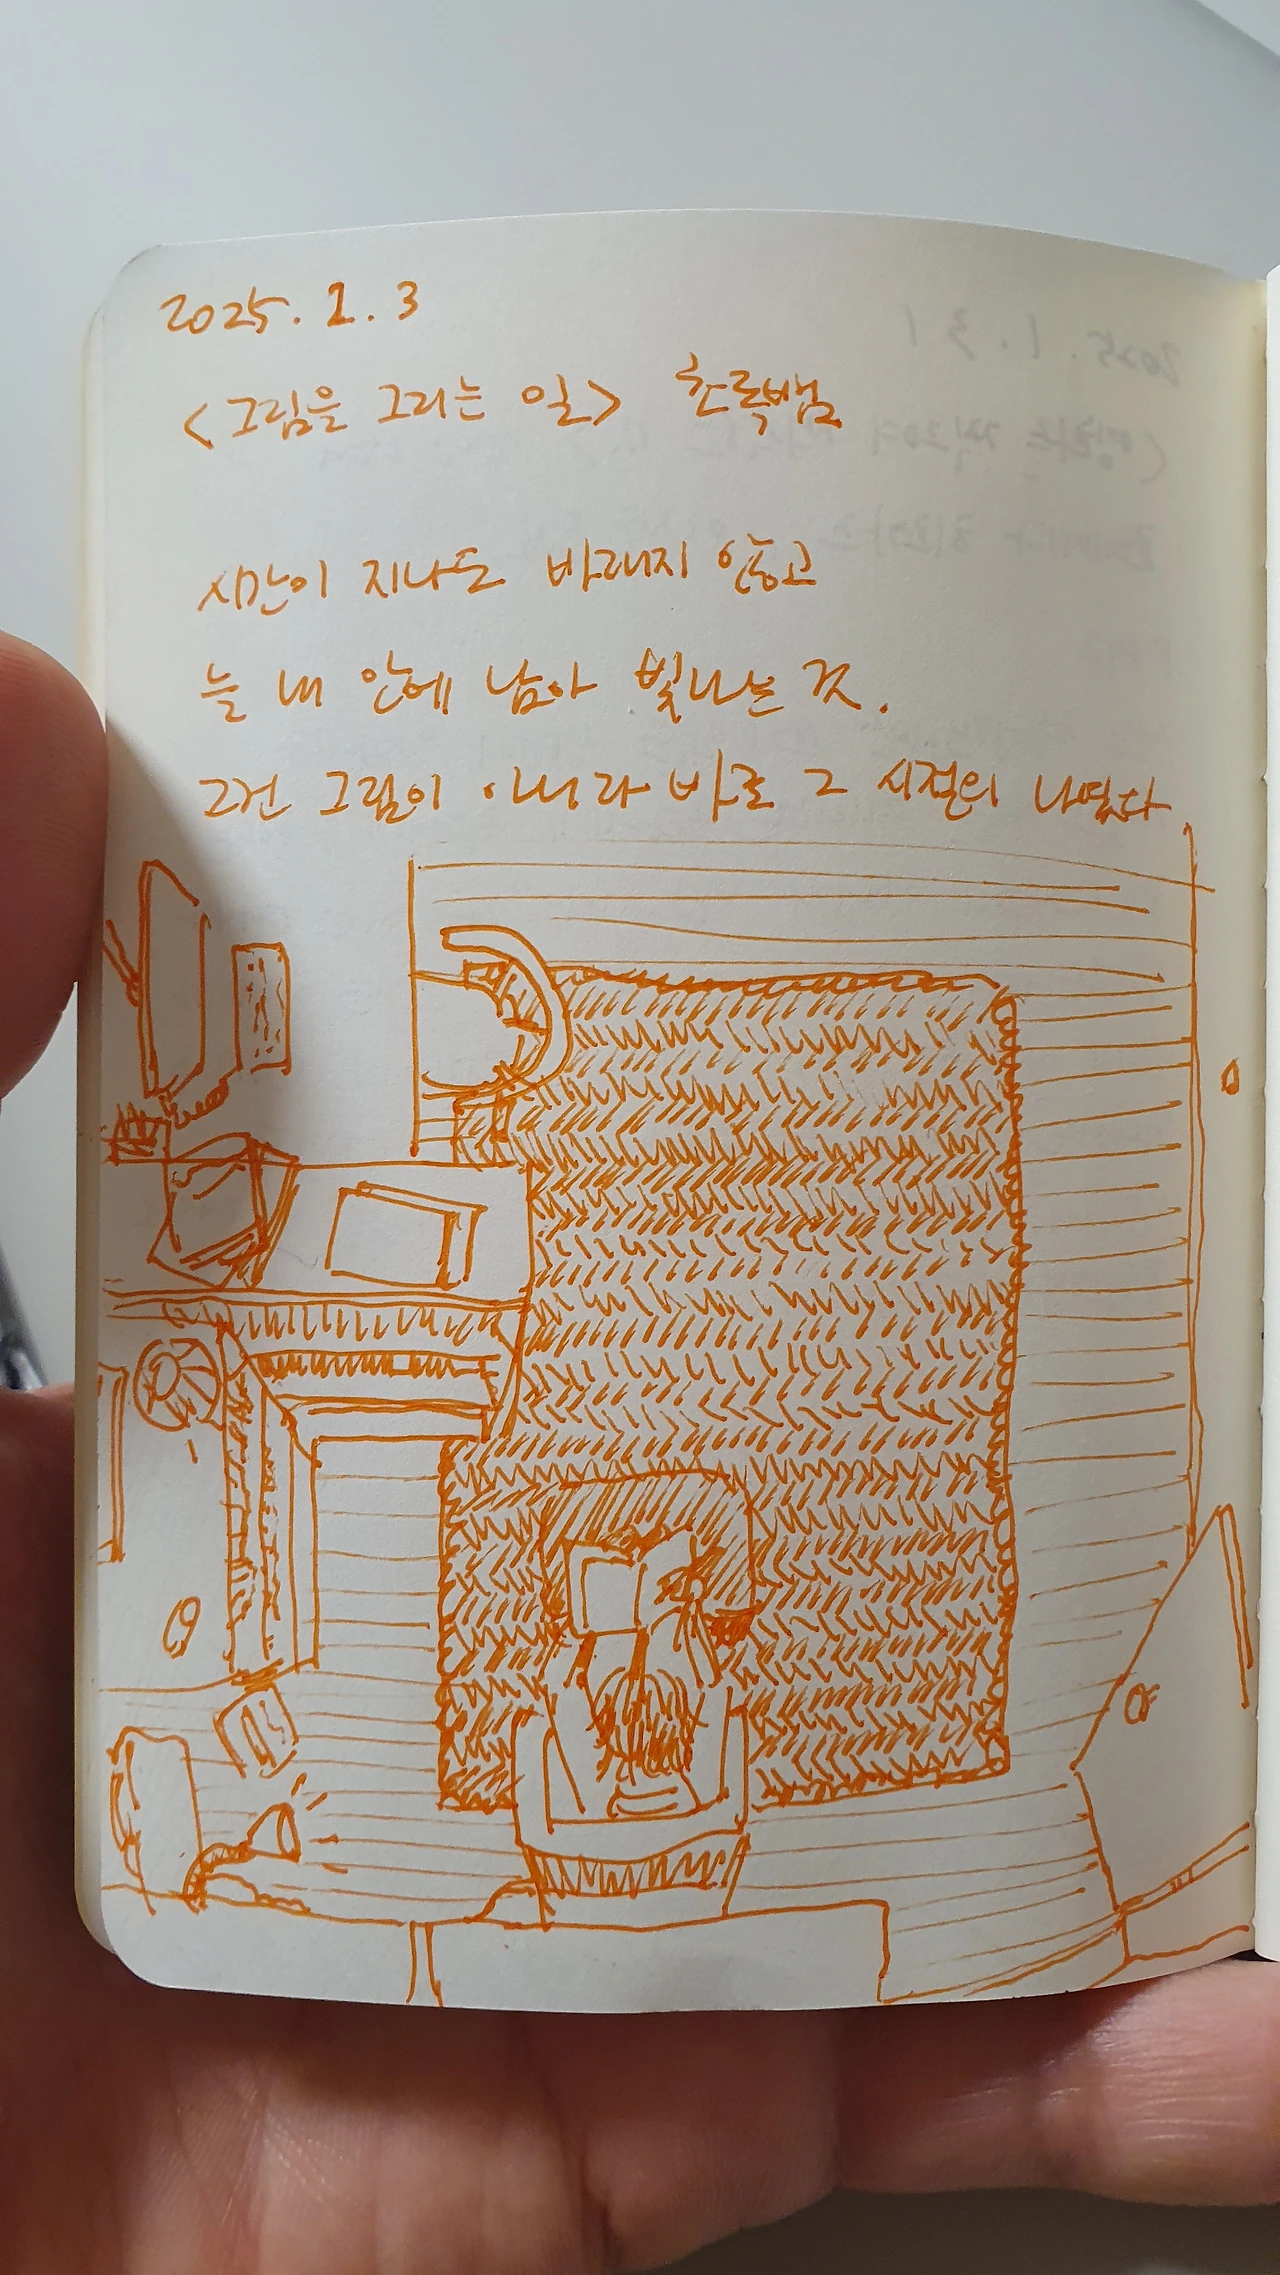 2025. 2. 3
<그림을 그리는 일> 초록뱀
시간이 지나도 바래지 않고
늘 내 안에 남아 빛나는 것.
그건 그림이 아니라 바로 그 시절의 나였다